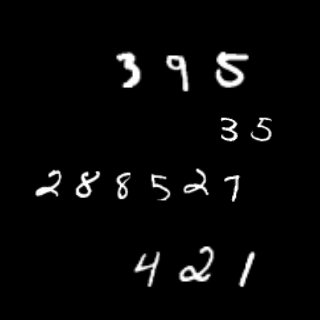 395
35
288527
421